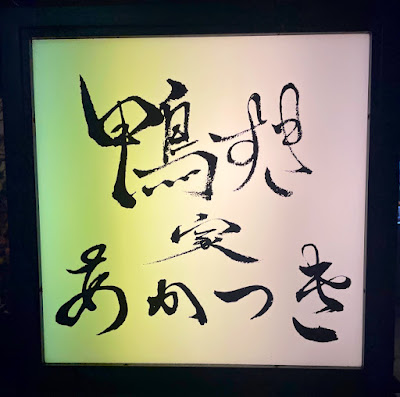 鴨すき
家
あかつき